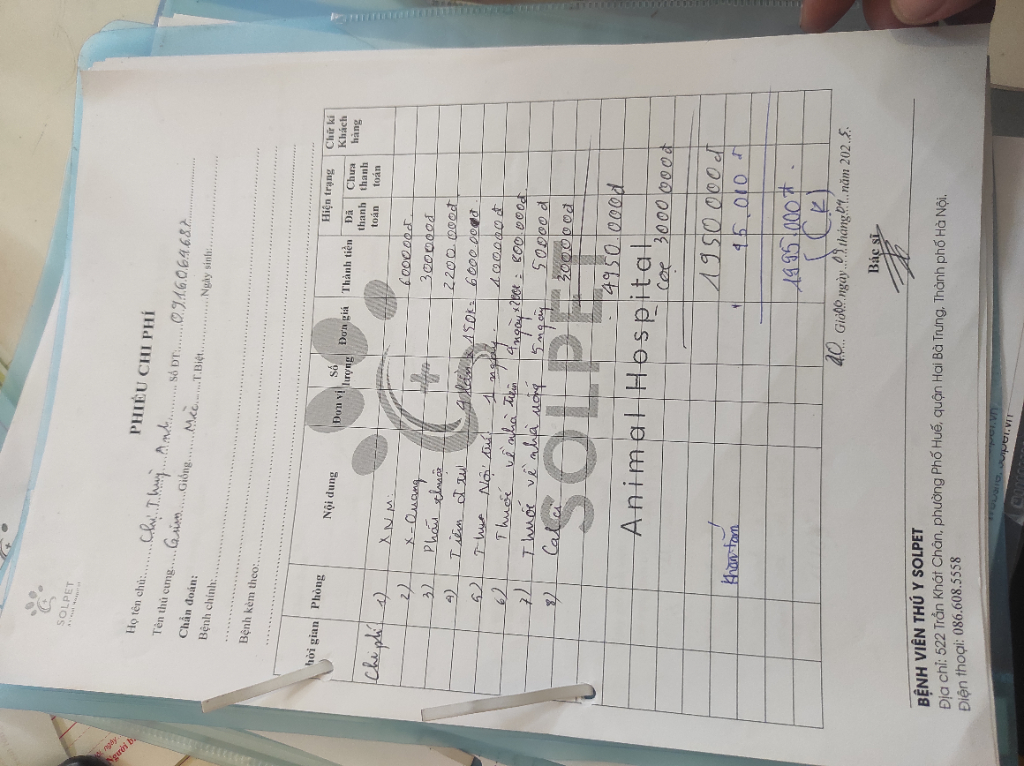 SOLPET
Animal Hospital
PHIẾU CHI PHÍ
Họ tên chủ:......Chị Thuỳ Anh......Số ĐT:....0916064687
Tên thú cưng:....Giống....Mèo....T.Biệt......Ngày sinh:......
Chẩn đoán:
Bệnh chính:
Bệnh kèm theo:
Thời gian Phòng Nội dung Đơn vị Số lượng Đơn giá Thành tiền Hiện trạng Đã thanh toán Chưa thanh toán Chữ kí Khách hàng
Chi phí 1) XNM 600000đ
2) X-Quang 300000đ
3) Phẫu thuật 2200.000đ
4) Tiêm đ trị 4 lần x 150k = 600.000đ
5) Thuê Nội trú 1 ngày 100000đ
6) Thuốc về nhà tiêm 4 ngày x 200k = 800.000đ
7) Thuốc về nhà uống 5 ngày 50000đ
8) Calci 300000đ
4950.000đ
cọc 3000000đ
1950000đ
Khăn tắm 45.000đ
1995.000đ
(CK)
SOLPET
Animal Hospital
20 Giờ00, ngày 09 tháng 04 năm 2025.
Bác sĩ
BỆNH VIỆN THÚ Y SOLPET
Địa chỉ: 522 Trần Khát Chân, phường Phố Huế, quận Hai Bà Trưng, Thành phố Hà Nội.
Điện thoại: 086.608.5558